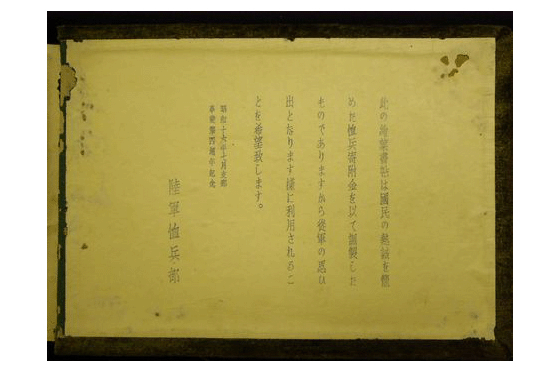 此の繪葉書帖は國民の熱誠を籠
めた恤兵寄附金を以て調製した
ものでありますから從軍の思ひ
出となります樣に利用されるこ
とを希望致します。
昭和十六年七月支那
事變第四周年記念
陸軍恤兵部